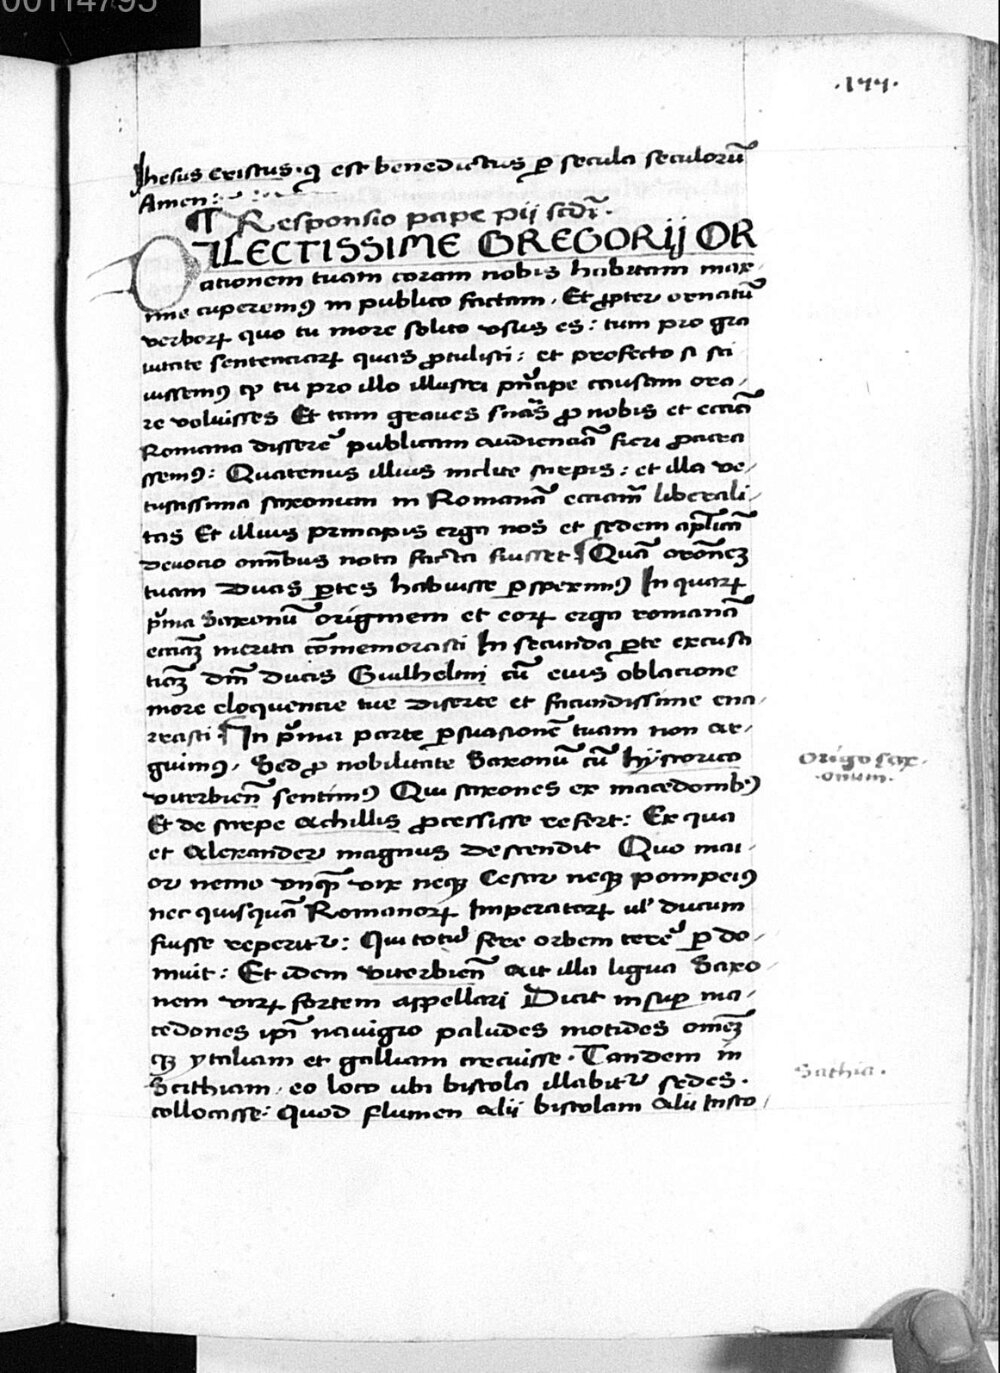 00114795
·177·
Jhesus cristus · q̄ est benedictus ꝑ secula seculorū
Amen :
¶ Responsio pape pij scd̄i ·
DILECTISSIME GREGORIJ OR
ationem tuam coram nobis habitam max-
ime cuperemꝰ in publico factam , Et ꝓpter ornatū
verborꝝ quo tu more solito vsus es : tum pro gra
uitate sentenciarꝝ quas ꝓtulisti : et profecto si sci
uissemꝰ ꝙ tu pro illo illustri pn̄cipe causam ora-
re voluisses Et tam graues sn̄ias ꝓ nobis et eccia
Romana disserē publicam audienciā fieri ꝓcura
ssemꝰ : Quatenus illius inclite stirpis : et illa ve-
tustissima saxonum in Romanā ecciam̄ liberali-
tas Et illius principis erga nos et sedem apl̄icā
deuocio om̄ibus nota facta fuisset Quā orōnem
tuam duas ꝑtes habuisse ꝑspeximꝰ In quarꝝ
pͥma Saxonū originem et eorꝝ erga romanā
ecciaꝫ merita cōmemorasti In secunda ꝑte excusa
tiōꝫ dn̄i ducis Guilhelmi cū eius oblacione
more eloquencie tue diserte et facundissime ena-
rrasti In pͥma parte ꝑsuasionē tuam non ar-
guimꝰ , Sed ꝓ nobilitate Saxonū cū hystorico
viterbien̄ sentimꝰ Qui saxones ex macedonibꝰ
Et de stirpe Achillis ꝓcessisse refert : Ex qua
et Alexander magnus descendit Quo mai-
or nemo vnqͣ vix neqꝫ Cesar neqꝫ pompeiꝰ
nec quisquā Romanorꝝ Imperatorꝝ ul' ducum
fuisse reperitr : Qui totū fere orbem terrē ꝑ do-
muit : Et idem viterbien̄ Ait illa ligua Saxo-
nem virꝝ fortem appellari Dicit insuꝑ ma-
cedones ipī nauigio paludes motides om̄eꝫ
qꝫ ytaliam et galliam circuisse · Tandem in
Scithiam , eo loco ubi bistola illabitr sedes ·
collocasse : quod flumen alij bistolam Alij histo-
Origo sax-
·onum·
Sathia ·